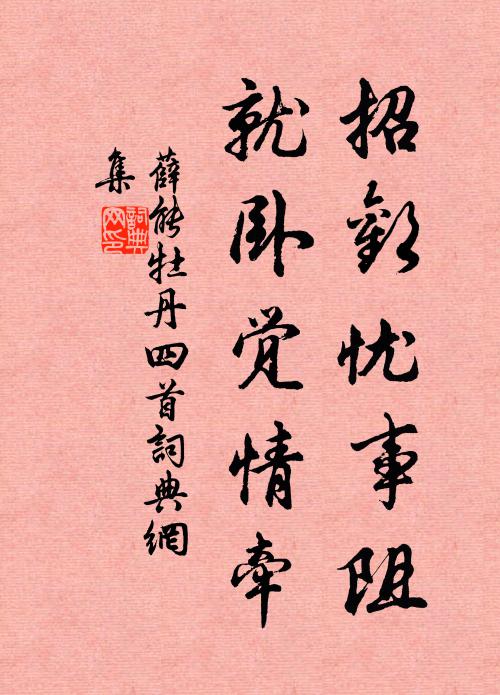 招歡忧事阻
就卧觉情牵
薛能牡丹四首詞典網
集
詞典網印